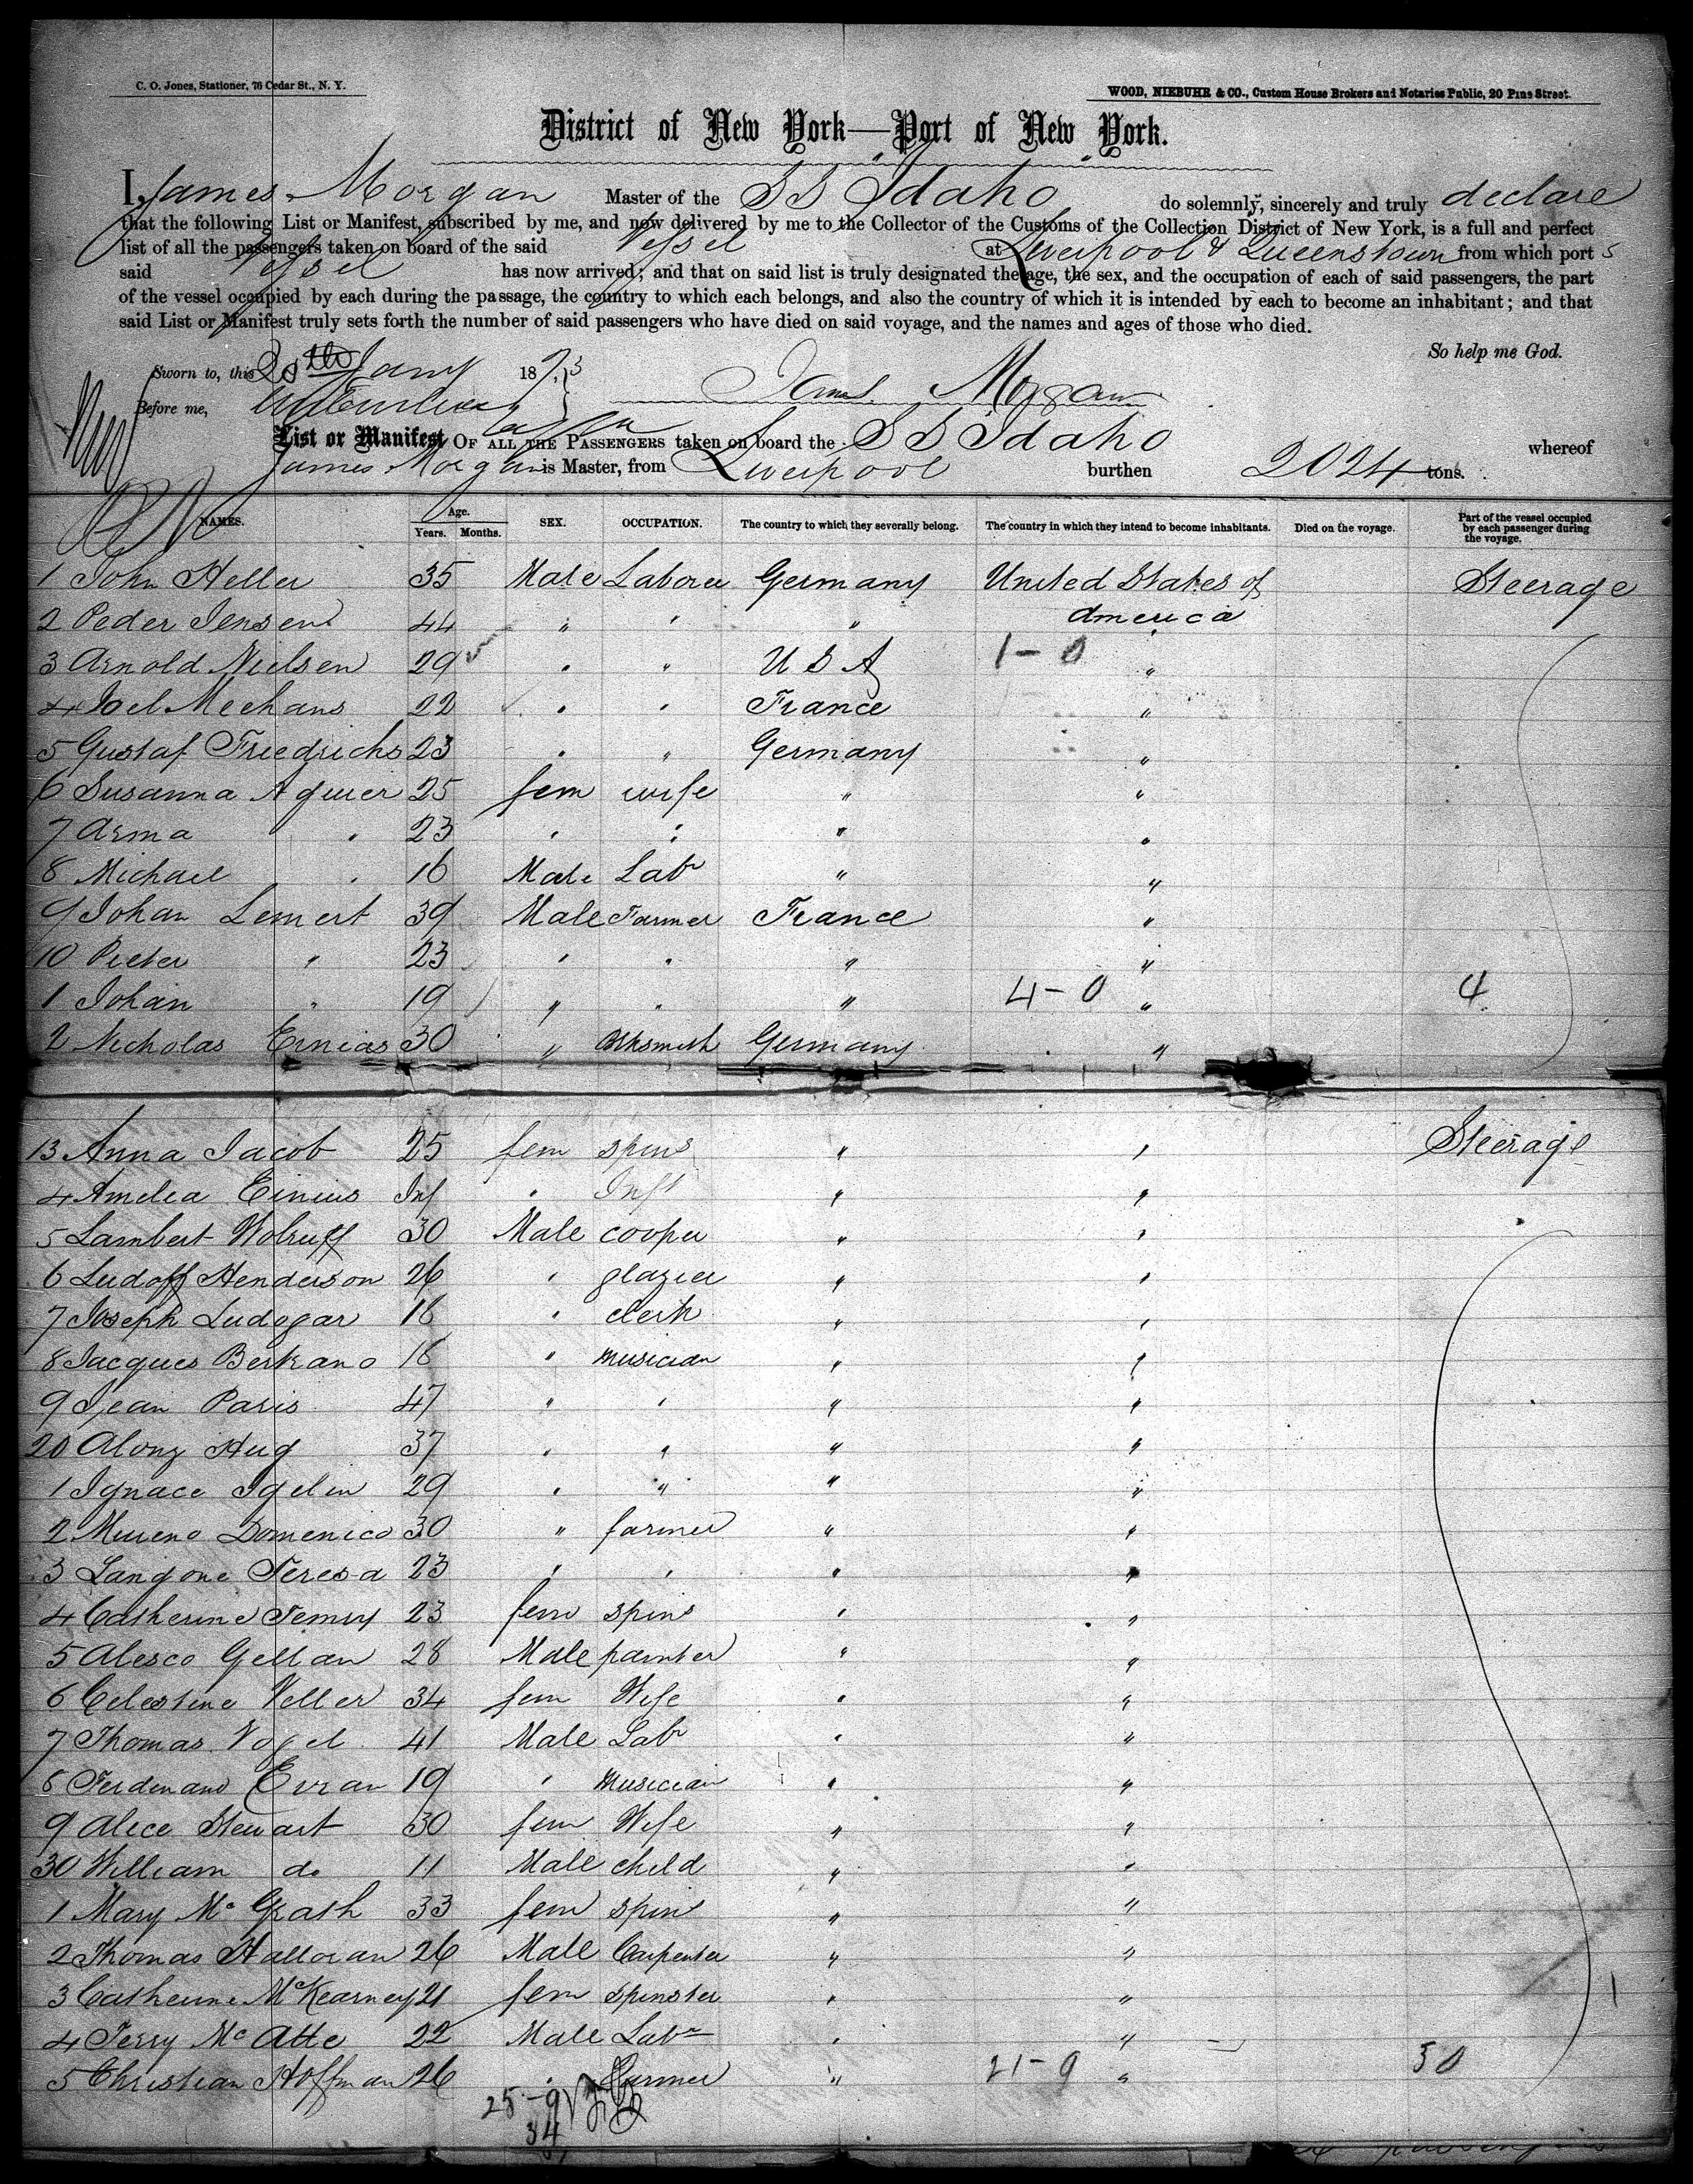 C. O. Jones, Stationer, 76 Cedar St., N. Y.
WOOD, NIEBUHR & CO., Custom House Brokers and Notaries Public, 20 Pine Street.
District of New York—Port of New York.
I, James Morgan Master of the SS Idaho do solemnly, sincerely and truly declare
that the following List or Manifest, subscribed by me, and now delivered by me to the Collector of the Customs of the Collection District of New York, is a full and perfect
list of all the passengers taken on board of the said Vessel at Liverpool & Queenstown from which port s
said Vessel has now arrived; and that on said list is truly designated the age, the sex, and the occupation of each of said passengers, the part
of the vessel occupied by each during the passage, the country to which each belongs, and also the country of which it is intended by each to become an inhabitant; and that
said List or Manifest truly sets forth the number of said passengers who have died on said voyage, and the names and ages of those who died.
So help me God.
Sworn to, this 28th Jany 1873
James Morgan
Before me,
List or Manifest OF ALL THE PASSENGERS taken on board the SS Idaho whereof
James Morgan is Master, from Liverpool burthen 2024 tons.
NAMES. Age. Years. Months. SEX. OCCUPATION. The country to which they severally belong. The country in which they intend to become inhabitants. Died on the voyage. Part of the vessel occupied by each passenger during the voyage.
1 John Heller 35 Male Laborer Germany United States of America Steerage
2 Peder Jensen 44 " " " "
3 Arnold Nielsen 29 " " U S A 1-0 "
4 Joel Mechans 22 " " France "
5 Gustaf Friedrichs 23 " " Germany "
6 Susanna Aguier 25 fem wife " "
7 Anna " 23 " " " "
8 Michael " 16 Male Labr " "
9 Johan Lemert 39 Male Farmer France "
10 Pieter " 23 " " " "
1 Johan " 19 " " " 4-0 " 4
2 Nicholas Ernias 30 " Blksmith Germany "
13 Anna Jacob 25 fem spins " " Steerage
4 Amelia Einius Inf " Inft " "
5 Lambert Wolruff 30 Male cooper " "
6 Ludoff Henderson 26 " glazier " "
7 Joseph Ludogar 18 " clerk " "
8 Jacques Bertrano 18 " musician " "
9 Jean Paris 47 " " " "
20 Alony Hug 37 " " " "
1 Ignace Igelin 29 " " " "
2 Mureno Domenico 30 " farmer " "
3 Langone Teresa 23 " " " "
4 Catherine Temry 23 fem spins " "
5 Alesco Gellan 28 Male painter " "
6 Celestine Veller 34 fem Wife " "
7 Thomas Vogel 41 Male Labr " "
8 Ferdinand Evran 19 " musician " "
9 Alice Stewart 30 fem Wife " "
30 William do 11 Male child " "
1 Mary Mc Grath 33 fem spins " "
2 Thomas Halloran 26 Male Carpenter " "
3 Catherine McKearney 21 fem spinster " "
4 Terry Mc Atte 22 Male Labr " "
5 Christian Hoffman 26 " Farmer " 21-9 " 30
25-9
34